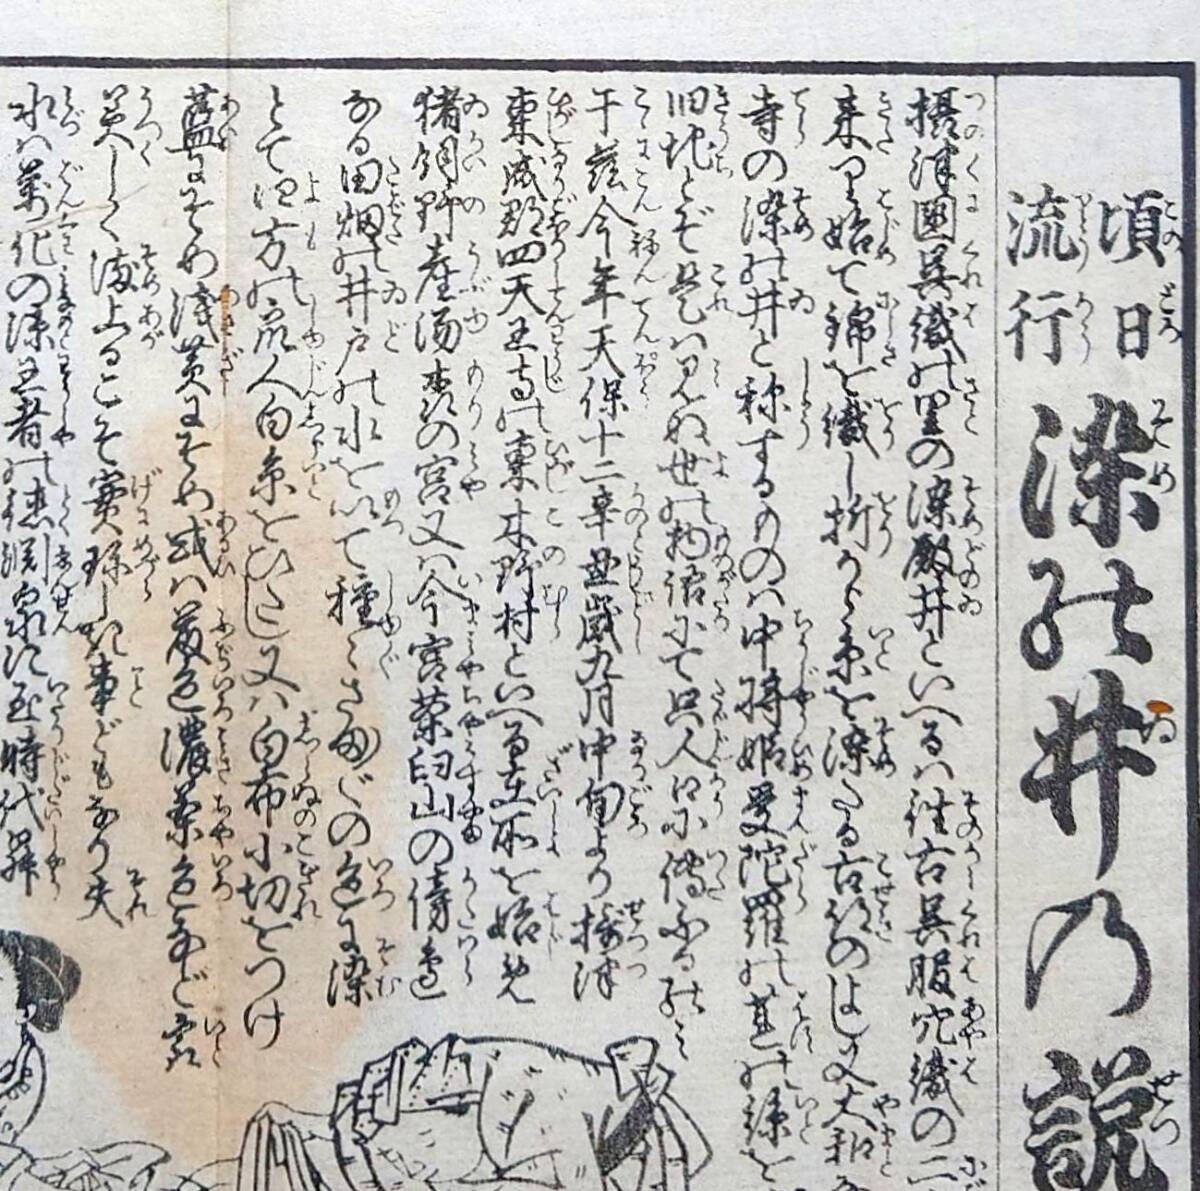 頃日流行 染の井の説
摂津国呉織の里の染殿井といへるは往古呉服穴織の二
来りて始て錦を織し折から糸を染たる古跡のよし又大和
寺の染の井と称するものは中将姫曼陀羅の蓮の糸を
旧地とぞ是は見ぬ世の物語にて只人口に伝ふるのミ
于茲今年天保十二辛丑歳九月中旬より摂津
東成郡四天王寺の東木野村といへる在所を始め
猪飼野産湯森の宮又は今宮茶臼山の傍辺
なる田畑の井戸の水を以て種々さまざまの色に染
とて四方の衆人白糸をひたし又は白布小切をつけ
藍にそめ浅黄にそめ或は藤色濃茶色など最
美しく染上ることぞ実珍しき事どもなり夫
水は万化の源王者の徳淵泉に至時代